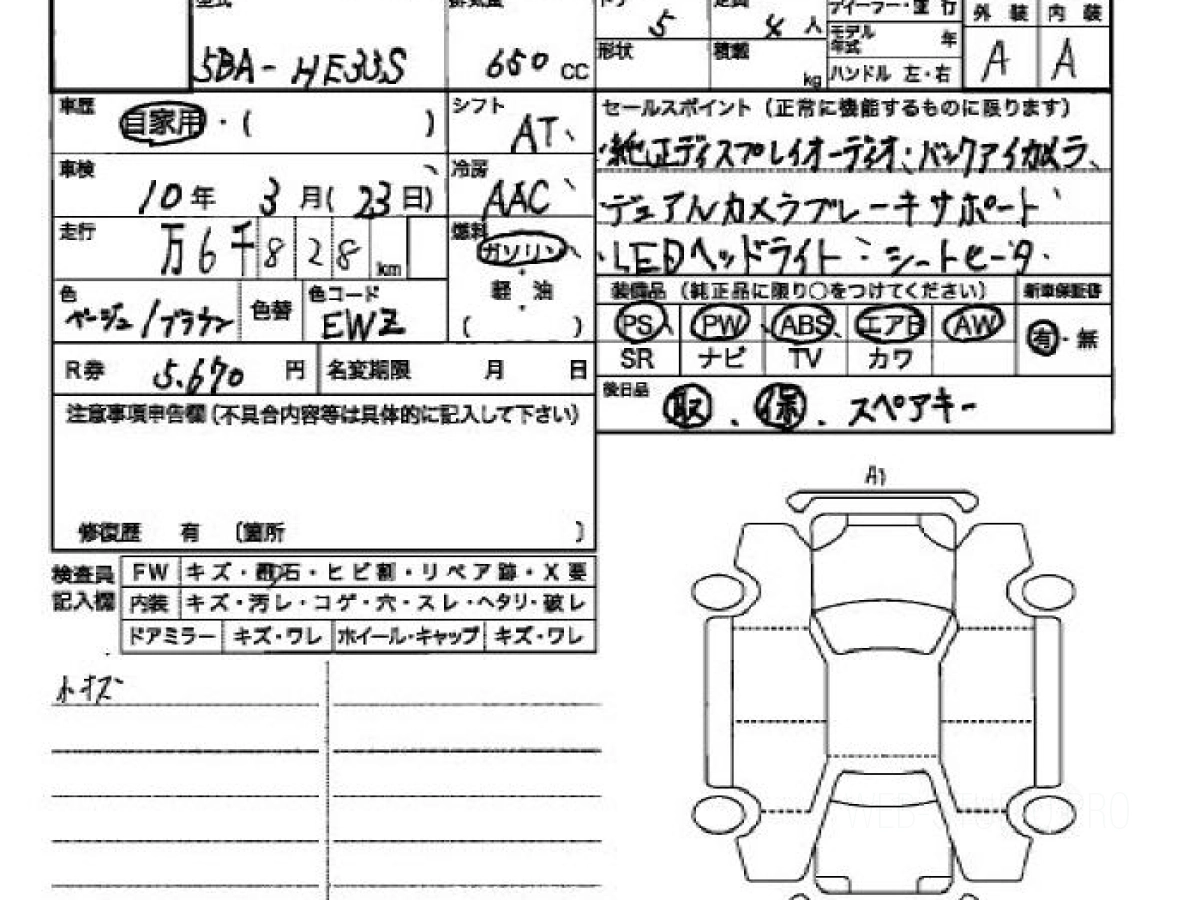 型式 排気量 ドア 定員 ディーラー・並行 外装 内装
5BA-HE33S 650 CC 5 4 人 モデル年式 年 A A
形状 積載 kg ハンドル 左・右
車歴 自家用・( ) シフト AT
車検 10年 3月(23日) 冷房 AAC
走行 万6千828km 燃料 ガソリン
軽油
( )
色 ベージュ/ブラウン 色替 色コード EWZ
R券 5,670 円 名変期限 月 日
注意事項申告欄(不具合内容等は具体的に記入して下さい)
修復歴 有 〔箇所 〕
セールスポイント(正常に機能するものに限ります)
・純正ディスプレイオーディオ、バックアイカメラ、
・デュアルカメラブレーキサポート
・LEDヘッドライト・シートヒータ・
装備品(純正品に限り○をつけてください) 新車保証書
PS PW ABS エアB AW 有・無
SR ナビ TV カワ
後日品 取、保、スペアキー
検査員記入欄
FW キズ・飛石・ヒビ割・リペア跡・X要
内装 キズ・汚レ・コゲ・穴・スレ・ヘタリ・破レ
ドアミラー キズ・ワレ ホイール・キャップ キズ・ワレ
A1